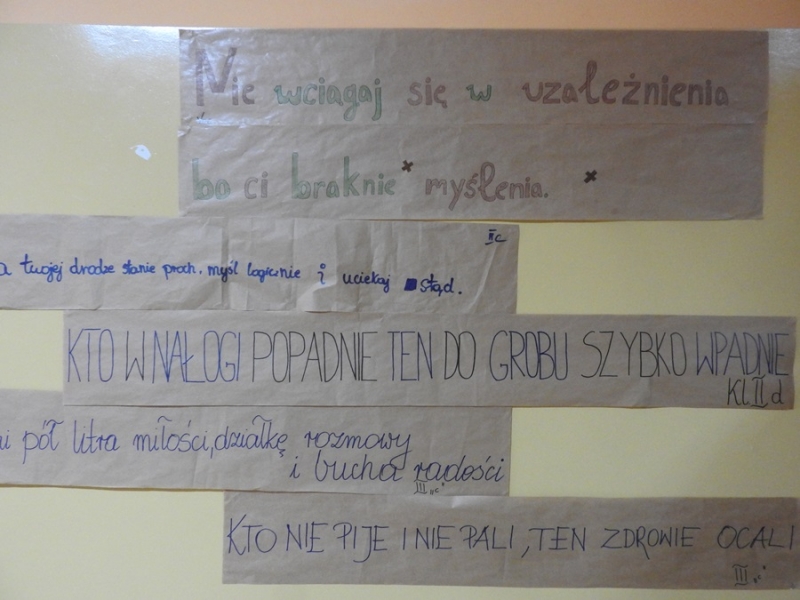 Nie wciągaj się w uzależnienia
bo ci braknie myślenia.
IIc
a twojej drodze stanie proch, myśl logicznie i uciekaj stąd.
KTO W NAŁOGI POPADNIE TEN DO GROBU SZYBKO WPADNIE
Kl II d
pół litra miłości, działkę rozmowy
i bucha radości
III "c"
KTO NIE PIJE I NIE PALI, TEN ZDROWIE OCALI
III "c"